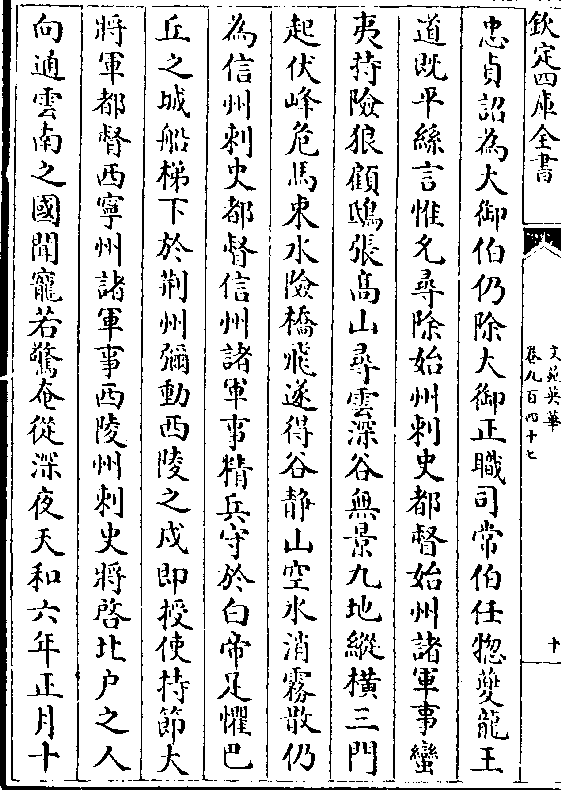 欽定四庫全書
文苑英華
卷九百四十七
十
忠貞詔為大御伯仍除大御正職司常伯任惣夔龍王
道既平絲言惟允尋除始州刺史都督始州諸軍事蠻
夷持險狼顧鴟張髙山尋雲深谷無景九地縱橫三門
起伏峰危馬束水險橋飛遂得谷静山空水消霧散仍
為信州刺史都督信州諸軍事精兵守於白帝足懼巴
丘之城船梯下於荆州彌動西陵之戍即授使持節大
將軍都督西寧州諸軍事西陵州刺史將啓北户之人
向通雲南之國聞寵若驚奄從深夜天和六年正月十